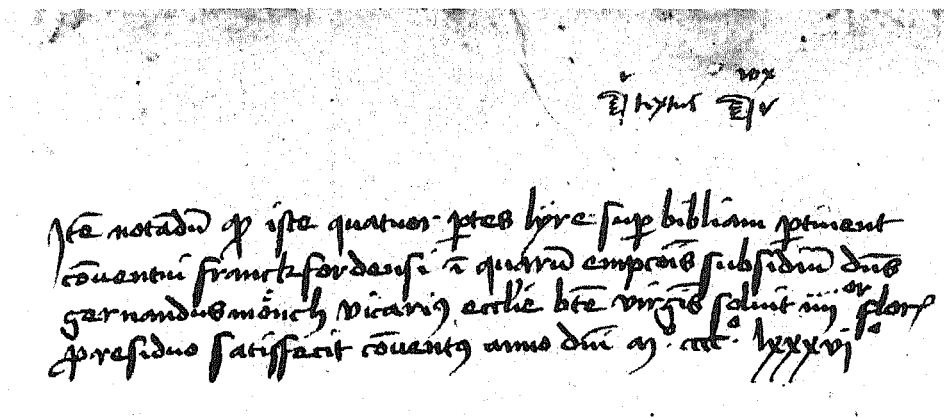 textus
Itē notādū qͻ iste quatuor ꝑtes lyre suꝑ bibliam ꝑtinent
cōventui franckfordensi ī quarū empcōis subsidiū dn̄s
gernandus mönch vicariꝰ ecclīe btē virgīs soluit iiii or flor
ꝓ residuo satisfecit cōventꝰ anno dn̄i m° cccc° lxxxvi°